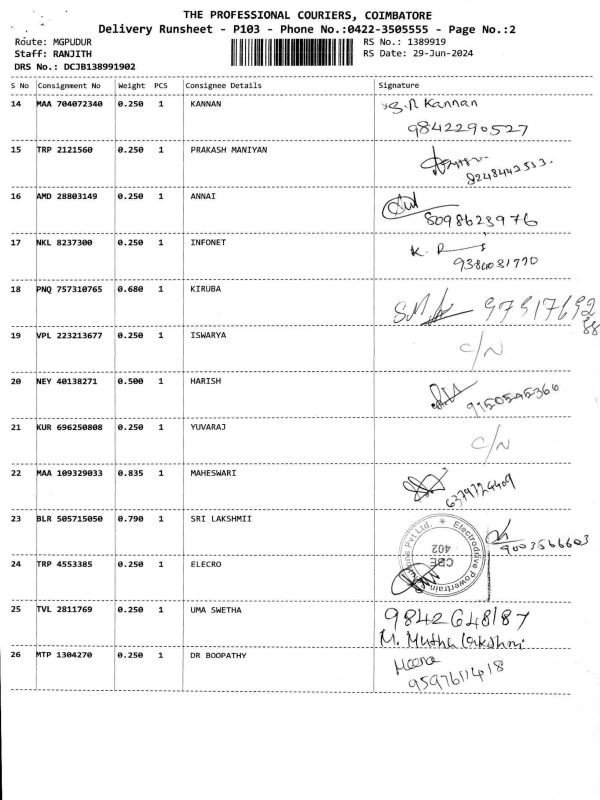 THE PROFESSIONAL COURIERS, COIMBATORE
Delivery Runsheet - P103 - Phone No.:0422-3505555 - Page No.:2
Route: MGPUDUR RS No.: 1389919
Staff: RANJITH RS Date: 29-Jun-2024
DRS No.: DCJB138991902
S No Consignment No Weight PCS Consignee Details Signature
14 MAA 704072340 0.250 1 KANNAN Kannan
9842290527
15 TRP 2121560 0.250 1 PRAKASH MANIYAN
16 AMD 28803149 0.250 1 ANNAI
8098623976
17 NKL 8237300 0.250 1 INFONET K.
18 PNQ 757310765 0.680 1 KIRUBA
19 VPL 223213677 0.250 1 ISWARYA C/N
20 NEY 40138271 0.500 1 HARISH
9150545366
21 KUR 696250808 0.250 1 YUVARAJ C/N
22 MAA 109329033 0.835 1 MAHESWARI
23 BLR 505715050 0.790 1 SRI LAKSHMII
9003566603
Electrodrive Powertrains Pvt Ltd.
CBE
402
24 TRP 4553385 0.250 1 ELECRO
25 TVL 2811769 0.250 1 UMA SWETHA 9842648187
M. Muthu Lakshmi
26 MTP 1304270 0.250 1 DR BOOPATHY Meena
9597611418